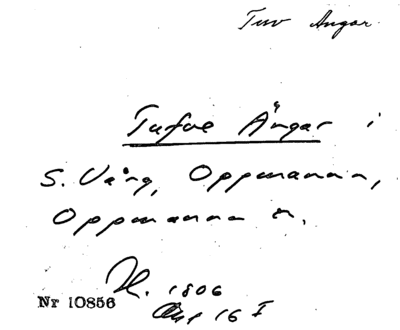 Tuv Ängar.
Tufve Ängar i
S. Vång, Oppmanna,
Oppmanna sn.
H. 1806
Nr 10856
Akt 16 I